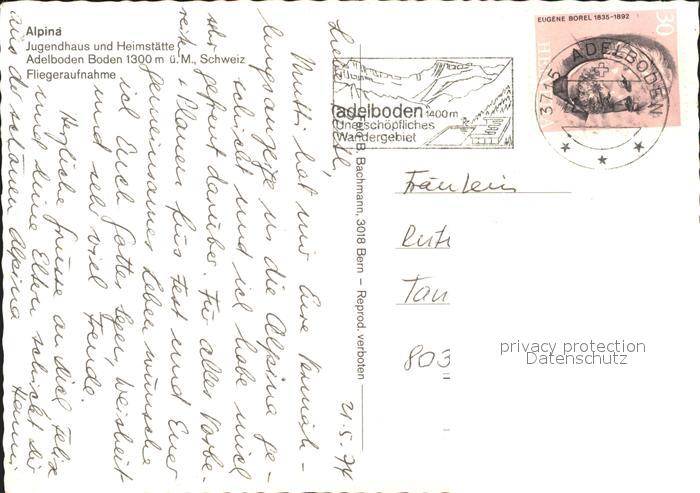 Alpina
Jugendhaus und Heimstätte
Adelboden Boden 1300 m ü. M., Schweiz
Fliegeraufnahme
EUGÈNE BOREL 1835-1892
30
HE
3715 ADELBODEN
adelboden 1400 m
Unerschöpfliches
Wandergebiet
B. Bachmann, 3018 Bern – Reprod. verboten
21.5.74
Mutti hat mir Eure Vermäh-
lungsanzeige in die Alpina ge-
schickt und ich habe mich
sehr gefreut darüber. Für alles Vorbe-
reiten, Planen fürs Fest und Euer
gemeinsames Leben wünsche
ich Euch Gottes Segen, Weisheit
und sehr viel Freude.
Herzliche Grüsse an Dich, Felix
und deine Eltern schickt dir
aus der schönen Alpina
Fräulein
Ruth
Tan
803
privacy protection
Datenschutz